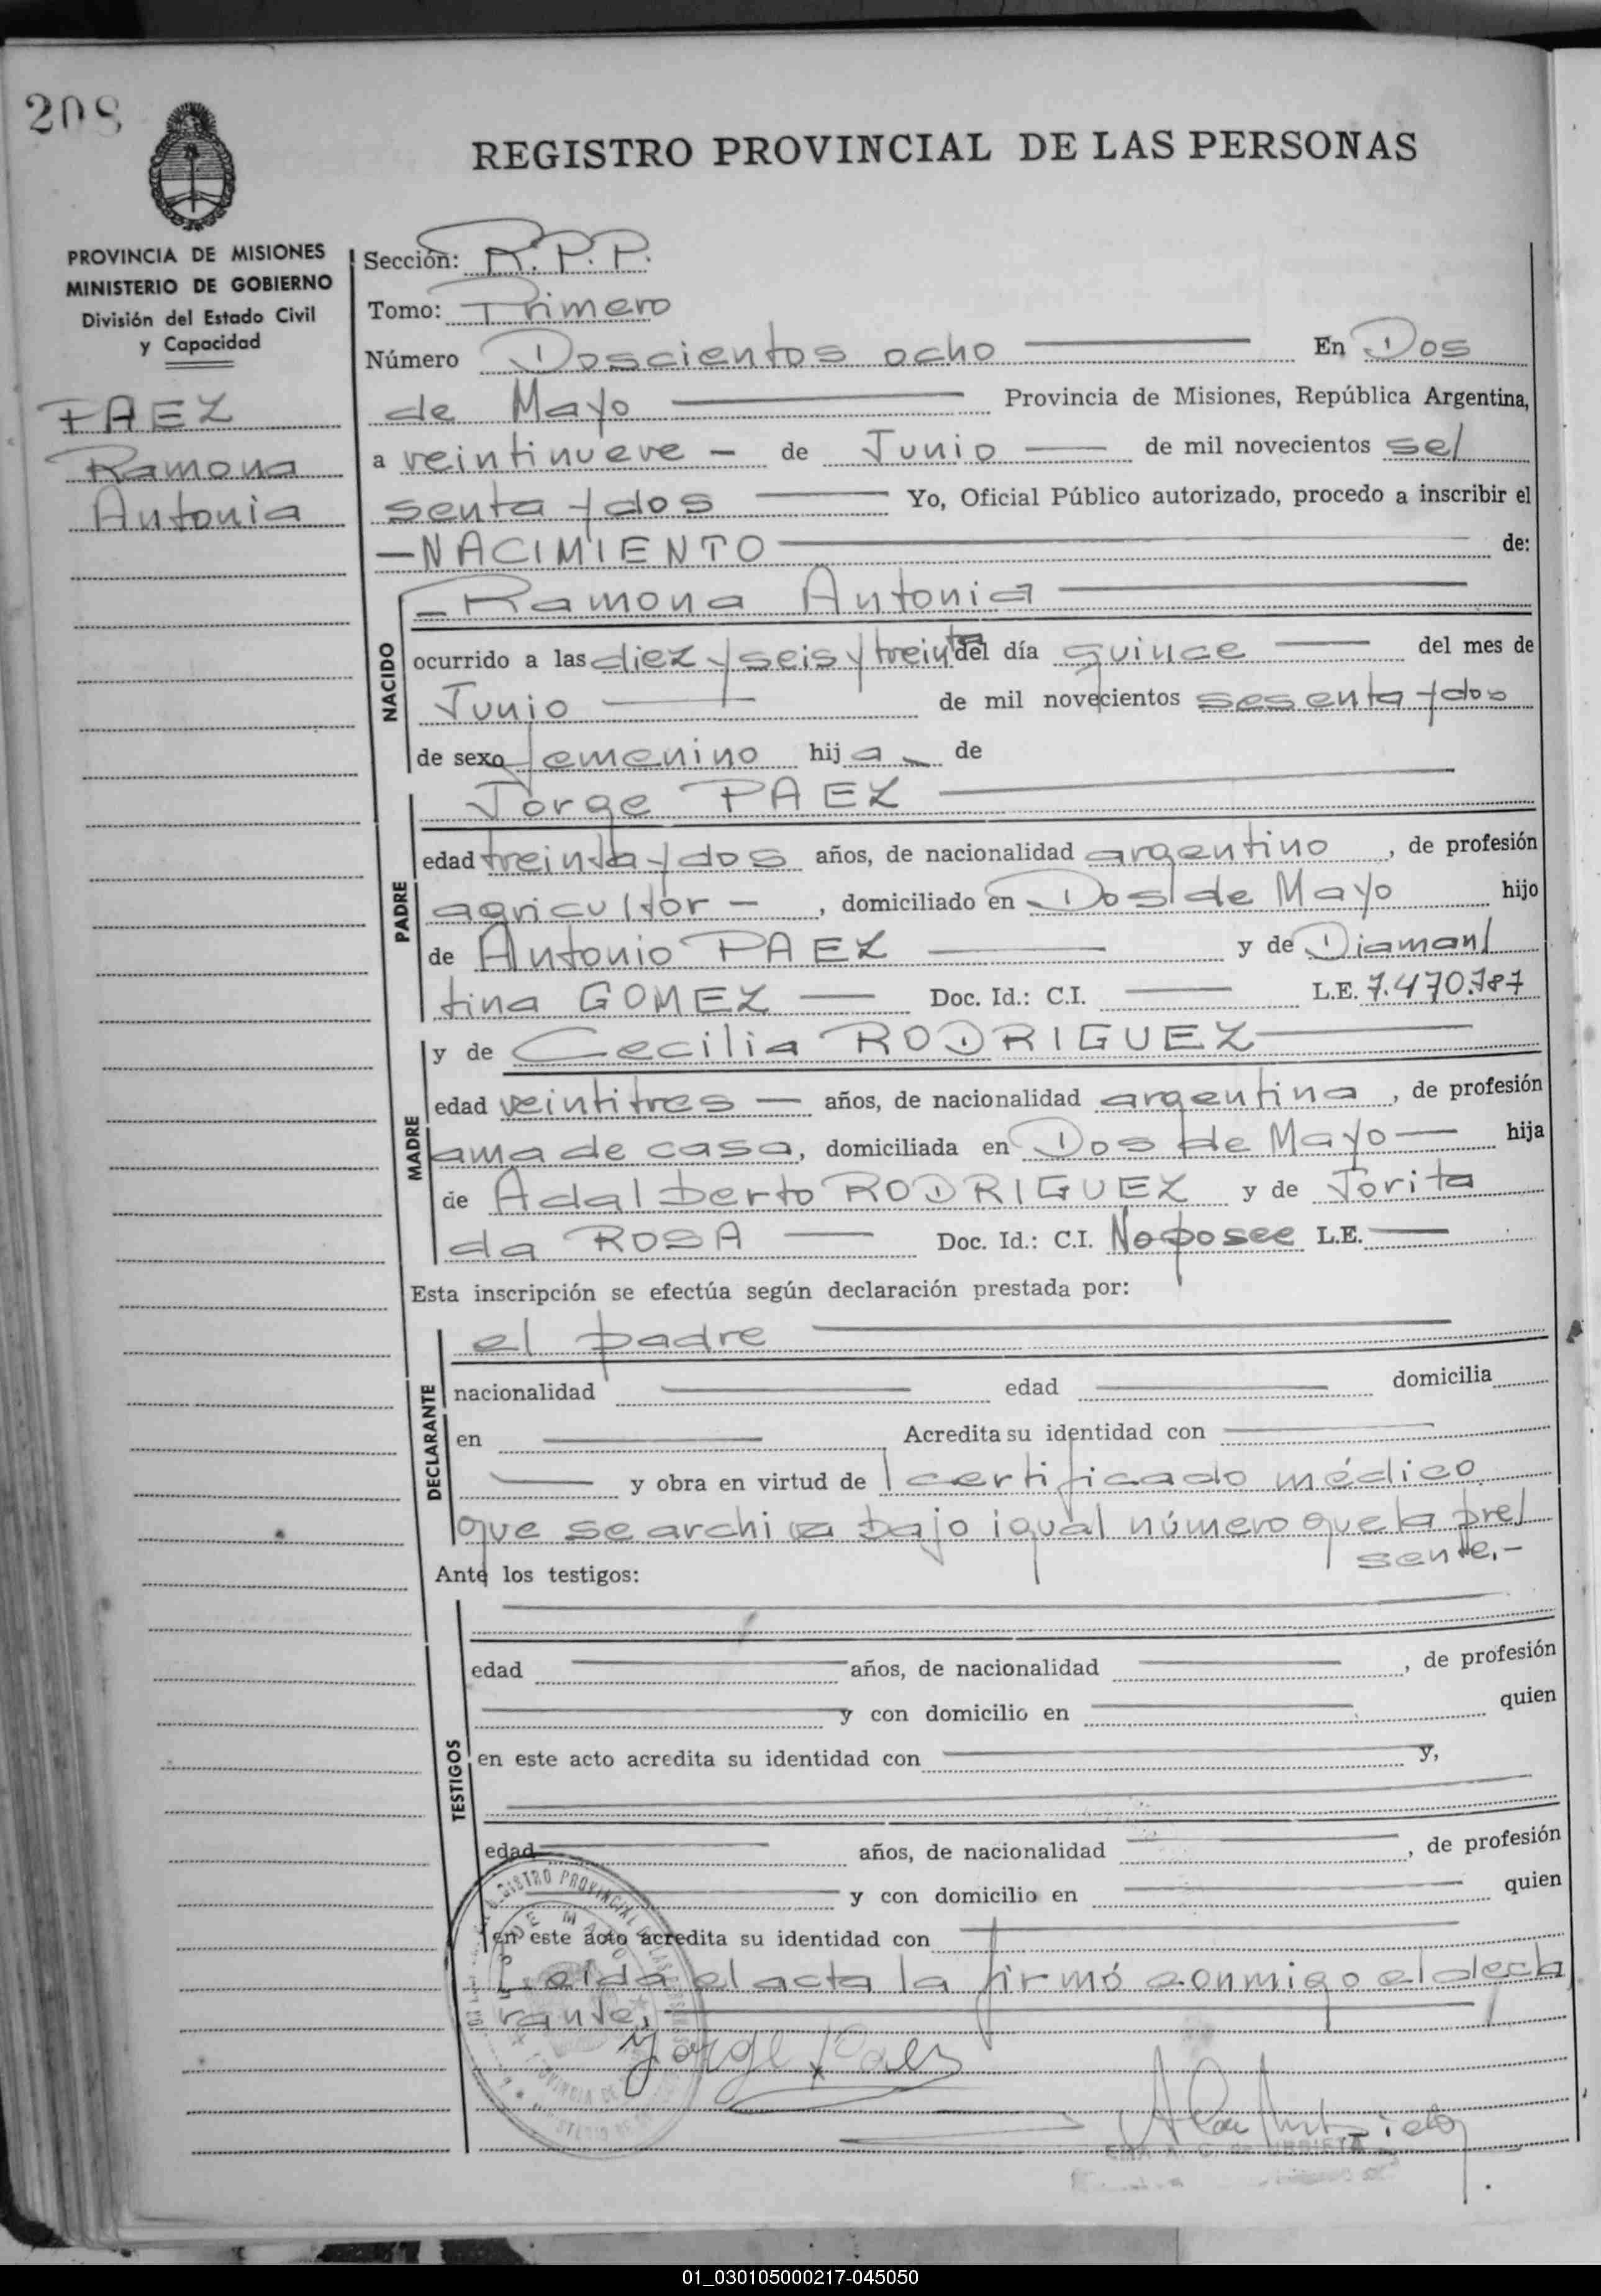 208
REGISTRO PROVINCIAL DE LAS PERSONAS
PROVINCIA DE MISIONES
MINISTERIO DE GOBIERNO
División del Estado Civil
y Capacidad
PAEZ
Ramona
Antonia
Sección: R.P.P.
Tomo: Primero
Número Doscientos ocho En Dos
de Mayo Provincia de Misiones, República Argentina,
a veintinueve - de Junio de mil novecientos se/
senta y dos Yo, Oficial Público autorizado, procedo a inscribir el
—NACIMIENTO de:
NACIDO
Ramona Antonia
ocurrido a las diez y seis y treinta del día quince del mes de
Junio de mil novecientos sesenta y dos
de sexo femenino hija de
PADRE
Jorge PAEZ
edad treinta y dos años, de nacionalidad argentino, de profesión
agricultor -, domiciliado en Dos de Mayo hijo
de Antonio PAEZ y de Diaman/
tina GOMEZ Doc. Id.: C.I. L.E. 7.470.787
MADRE
y de Cecilia RODRIGUEZ
edad veintitres — años, de nacionalidad argentina, de profesión
ama de casa, domiciliada en Dos de Mayo — hija
de Adalberto RODRIGUEZ y de Jorita
da ROSA Doc. Id.: C.I. No posee L.E.
Esta inscripción se efectúa según declaración prestada por:
DECLARANTE
el padre
nacionalidad edad domicilia
en Acredita su identidad con
y obra en virtud de 1 certificado médico
que se archiva bajo igual número que la pre/
sente.-
Ante los testigos:
TESTIGOS
edad años, de nacionalidad , de profesión
y con domicilio en quien
en este acto acredita su identidad con y,
edad años, de nacionalidad , de profesión
y con domicilio en quien
en este acto acredita su identidad con
Leida el acta la firmó conmigo el decla
rante.
Jorge Paez
01_030105000217-045050